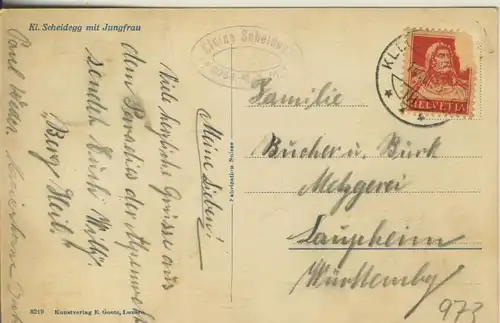 Kl. Scheidegg mit Jungfrau
Kleine Scheidegg
KL
HELVETIA
Meine Lieben!
Viele herzliche Grüsse aus
dem Paradies der Alpenwelt
sendet Euch Willy.
"Berg Heil"
Paul
Familie
Bücher u. Bürk
Metzgerei
Laupheim
Württemberg
973
Fabrication Suisse
8219 Kunstverlag E. Goetz, Luzern